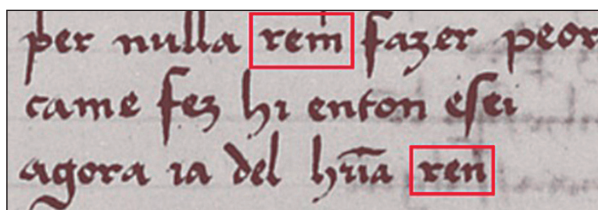 per nulla rem fazer peor
came fez hi enton esei
agora ia del hr̃ia ren